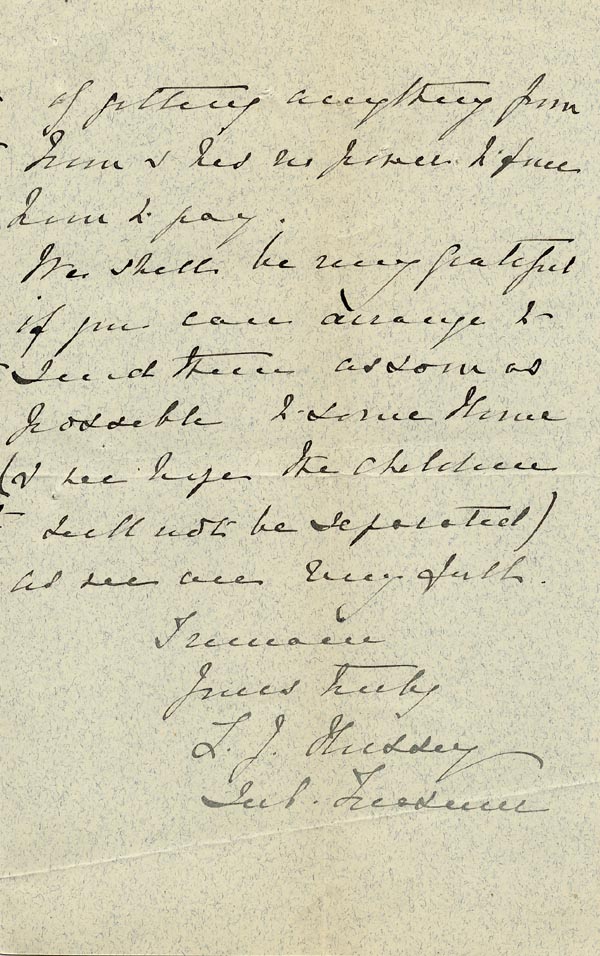 of getting anything from
him & has no power to force
him to pay.
We shall be very grateful
if you can arrange to
send them as soon as
possible to some Home
(& we hope the children
will not be separated)
as we are very full.
I remain
Yours truly
L. J. Hussey